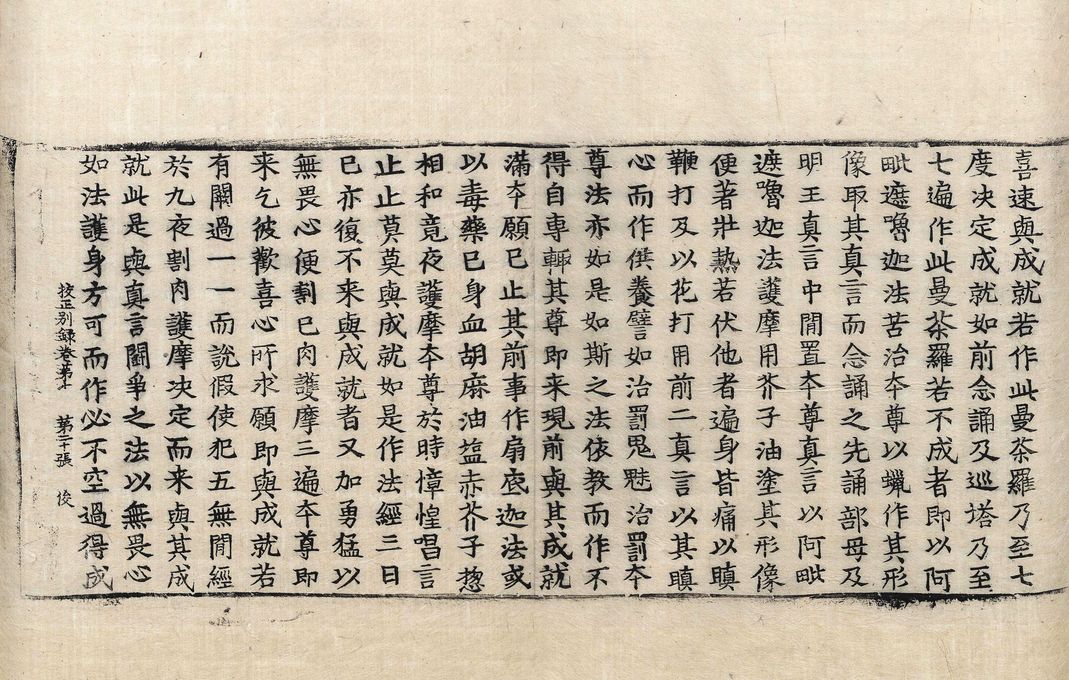 喜速與成就若作此曼荼羅乃至七
度决定成就如前念誦及巡塔乃至
七遍作此曼荼羅若不成者即以阿
毗遮嚕迦法苦治夲尊以蠟作其形
像取其真言而念誦之先誦部母及
明王真言中間置夲尊真言以阿毗
遮嚕迦法護摩用芥子油塗其形像
便著壯熱若伏他者遍身皆痛以瞋
鞭打及以花打用前二真言以其瞋
心而作供養譬如治罰鬼魅治罰夲
尊法亦如是如斯之法依教而作不
得自専輙其尊即来現前與其成就
滿夲願已止其前事作扇底迦法或
以毒藥己身血胡麻油塩赤芥子惣
相和竟夜護摩夲尊於時慞惶唱言
止止莫莫與成就如是作法經三日
已亦復不来與成就者又加勇猛以
無畏心便割己肉護摩三遍夲尊即
来乞彼歡喜心所求願即與成就若
有闕過一一而說假使犯五無間經
於九夜割肉護摩决定而来與其成
就此是與真言鬪爭之法以無畏心
如法護身方可而作必不空過得成
挍正别録卷第十 第二十張 俊